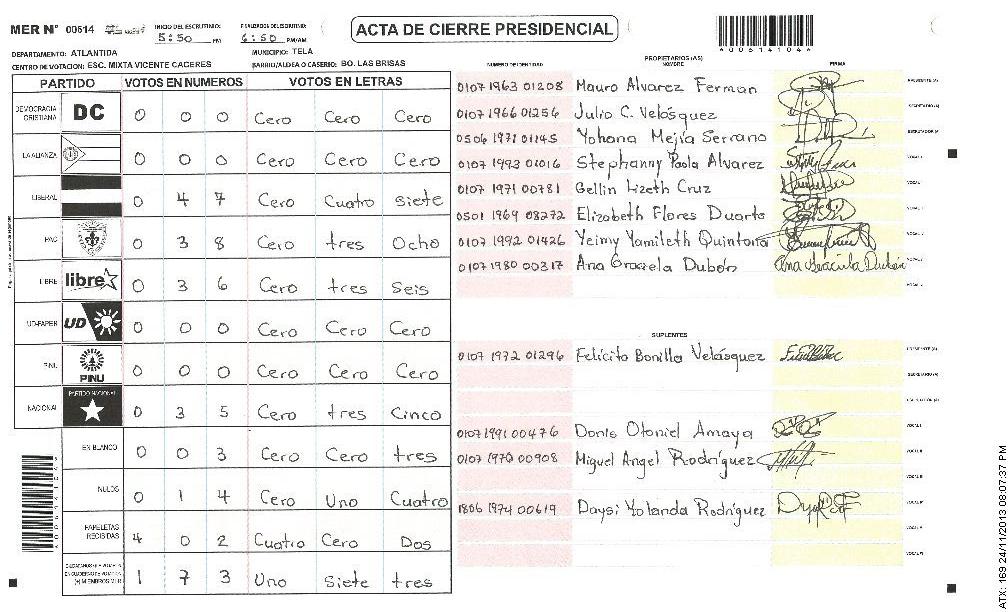 MER N° 00614
INICIO DEL ESCRUTINIO: 5:50 PM
FINALIZACION DEL ESCRUTINIO: 6:50 PM/AM
ACTA DE CIERRE PRESIDENCIAL
DEPARTAMENTO: ATLANTIDA
MUNICIPIO: TELA
CENTRO DE VOTACION: ESC. MIXTA VICENTE CACERES
BARRIO/ALDEA O CASERIO: BO. LAS BRISAS
PARTIDO VOTOS EN NUMEROS VOTOS EN LETRAS
DEMOCRACIA CRISTIANA DC 0 0 0 Cero Cero Cero
LA ALIANZA 0 0 0 Cero Cero Cero
LIBERAL 0 4 7 Cero Cuatro Siete
PAC 0 3 8 Cero tres Ocho
LIBRE libre 0 3 6 Cero tres Seis
UD-FAPER UD 0 0 0 Cero Cero Cero
PINU PINU 0 0 0 Cero Cero Cero
NACIONAL PARTIDO NACIONAL 0 3 5 Cero tres Cinco
EN BLANCO 0 0 3 Cero Cero tres
NULOS 0 1 4 Cero Uno Cuatro
PAPELETAS RECIBIDAS 4 0 2 Cuatro Cero Dos
1 7 3 Uno Siete tres
PROPIETARIOS (AS)
NUMERO DE IDENTIDAD NOMBRE FIRMA
0107 1963 01208 Mauro Alvarez Ferman
0107 1966 01256 Julio C. Velásquez
0506 1971 01145 Yohana Mejía Serrano
0107 1993 01016 Stephanny Paola Alvarez
0107 1971 00781 Gellin Lizeth Cruz
0501 1969 08272 Elizabeth Flores Duarte
0107 1992 01426 Yeimy Yamileth Quintana
0107 1980 00317 Ana Graciela Dubón Ana Graciela Dubón
SUPLENTES
0107 1972 01296 Felícito Bonilla Velásquez
0107 1991 00476 Donis Otoniel Amaya
0107 1970 00908 Miguel Angel Rodríguez
1806 1974 00619 Daysi Yolanda Rodríguez
ATX: 169 24/11/2013 08:07:37 PM